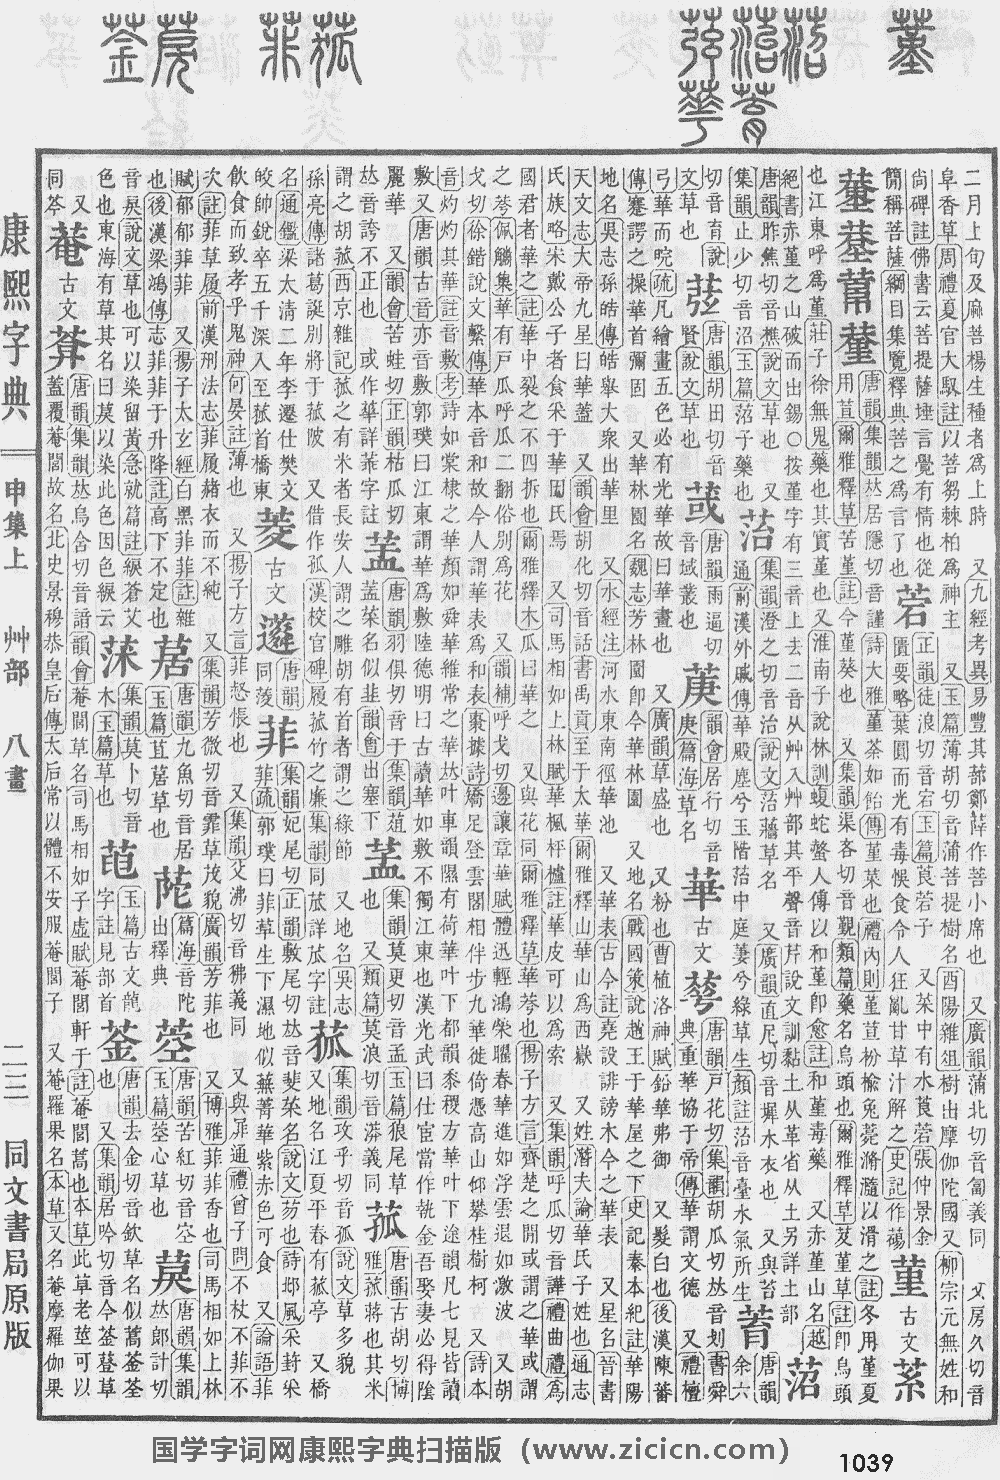 蓳 菭 沼 菭 菥 華 菰 菲 菴 菳
康熙字典 申集上 艸部 八畫 二三 同文書局原版
二月上旬及麻菩楊生種者爲上時 又九經考異易豐其部鄭薛作菩小席也 又廣韻蒲北切音匐義同 又房久切音
阜香草周禮夏官大馭註以菩芻棘柏爲神主 又玉篇薄胡切音蒲菩提樹名酉陽雜俎樹出摩伽陀國又柳宗元無姓和
尚碑註佛書云菩提薩埵言覺有情也從
簡稱菩薩綱目集覽釋典菩之爲言了也
菪
正韻徒浪切音宕玉篇莨菪子 又菜中有水莨菪張仲景金
匱要略葉圓而光有毒悞食令人狂亂甘草汁解之史記作蕩
堇
古文
用荁爾雅釋草苦堇註今堇葵也 又集韻渠吝切音覲類篇藥名烏頭也爾雅釋草芨堇草註卽烏頭
唐韻集韻𠀤居隱切音謹詩大雅堇荼如飴傳堇菜也禮內則堇荁枌楡兔薧滫瀡以滑之註冬用堇夏
也江東呼爲堇莊子徐無鬼藥也其實堇也又淮南子說林訓蝮蛇螫人傅以和堇卽愈註和堇毒藥 又赤堇山名越
絕書赤堇之山破而出錫〇按堇字有三音上去二音从艸入艸部其平聲音芹說文訓黏土从革省从土另詳土部
菬
唐韻
集韻止少切音沼玉篇菬子藥也
唐韻昨焦切音樵說文草也 又
菭
集韻澄之切音治說文菭蘠草名 又廣韻直尼切音墀水衣也 又與苔
通前漢外戚傳華殿塵兮玉階菭中庭萋兮綠草生顏註菭音臺水氣所生
菁
余六
切音育說
文草也
唐韻胡田切音
賢說文草也
唐韻雨逼切
音域叢也
韻會居行切音
庚篇海草名
華
古文
唐韻戶花切集韻胡瓜切𠀤音划書舜
典重華協于帝傳華謂文德 又禮檀
弓華而睆疏凡繪畫五色必有光華故曰華畫也 又廣韻草盛也 又粉也曹植洛神賦鉛華弗御 又髮白也後漢陳蕃
傳蹇諤之操華首彌固 又華林園名魏志芳林園卽今華林園 又地名戰國策說趙王于華屋之下史記秦本紀註華陽
地名吳志孫皓傳皓舉大衆出華里 又水經注河水東南徑華池 又華表古今註堯設誹謗木今之華表 又星名晉書
天文志大帝九星曰華蓋 又韻會胡化切音話書禹貢至于太華爾雅釋山華山爲西嶽 又姓潛夫論華氏子姓也通志
氏族略宋戴公子者食采于華因氏焉 又司馬相如上林賦華楓枰櫨註華皮可以爲索 又集韻呼瓜切音譁禮曲禮爲
國君者華之註華中裂之不四拆也爾雅釋木瓜曰華之 又與花同爾雅釋草華荂也揚子方言齊楚之閒或謂之華或謂
之荂佩觿集華有戶瓜呼瓜二翻俗別爲花 又韻補呼戈切邊讓章華賦體迅輕鴻榮曜春華進如浮雲退如激波 又胡
戈切徐鍇說文繫傳華本音和故今人謂華表爲和表棗據詩矯足登雲閣相伴步九華徙倚憑高山仰攀桂樹柯 又詩本
音灼灼其華註音敷考詩如棠棣之華顏如舜華維常之華𠀤叶車韻隰有荷華叶下都韻黍稷方華叶下途韻凡七見皆讀
敷又唐韻古音亦音敷郭璞曰江東謂華爲敷陸德明曰古讀華如敷不獨江東也漢光武曰仕宦當作執金吾娶妻必得陰
麗華 又韻會苦蛙切正韻枯瓜切
𠀤音誇不正也 或作𦻏詳𦻏字註
唐韻羽俱切音于集韻菹
菜名似韭韻會出塞下
集韻莫更切音孟玉篇狼尾草
也 又類篇莫浪切音漭義同
菰
唐韻古胡切博
雅菰蔣也其米
謂之胡菰西京雜記菰之有米者長安人謂之雕胡有首者謂之綠節 又地名吳志
孫亮傳諸葛誕別將于菰陂 又借作孤漢校官碑履菰竹之廉集韻同苽詳苽字註
集韻攻乎切音孤說文草多貌
又地名江夏平春有菰亭 又橋
名通鑑梁太淸二年李遷仕樊文
皎帥銳卒五千深入至菰首橋東
菱
古文
唐韻
同蔆
菲
集韻妃尾切正韻敷尾切𠀤音斐菜名說文芴也詩邶風采葑采
菲疏郭璞曰菲草生下濕地似蕪菁華紫赤色可食 又論語菲
飲食而致孝乎鬼神何晏註薄也 又揚子方言菲怒悵也 又集韻父沸切音狒義同 又與屝通禮曾子問不杖不菲不
次註菲草履前漢刑法志菲履赭衣而不純 又集韻芳微切音霏草茂貌廣韻芳菲也 又博雅菲菲香也司馬相如上林
賦郁郁菲菲 又揚子太玄經白黑菲菲註雜
也後漢梁鴻傳志菲菲于升降註高下不定也
唐韻九魚切音居
玉篇苴菧草也
篇海音陀
出釋典
菭
唐韻苦紅切音空
玉篇菫心草也
唐韻集韻
𠀤郎計切
音戾說文草也可以染留黃急就篇註綟蒼艾
色也東海有草其名曰莀以染此色因色綟云
集韻莫卜切音
木玉篇草也
玉篇古文龍
字註見部首
菳
唐韻去金切音欽草名似蒿菳荃
也 又集韻居吟切音今菳䔽草
同芩 又
菴
古文
唐韻集韻𠀤烏含切音諳韻會菴閭草名司馬相如子虛賦菴閭軒于註菴閭蒿也本草此草老莖可以
蓋覆菴閭故名北史景穆恭皇后傳太后常以體不安服菴閭子 又菴羅果名本草又名菴摩羅伽果
国学字词网康熙字典扫描版（www.zicicn.com）
1039